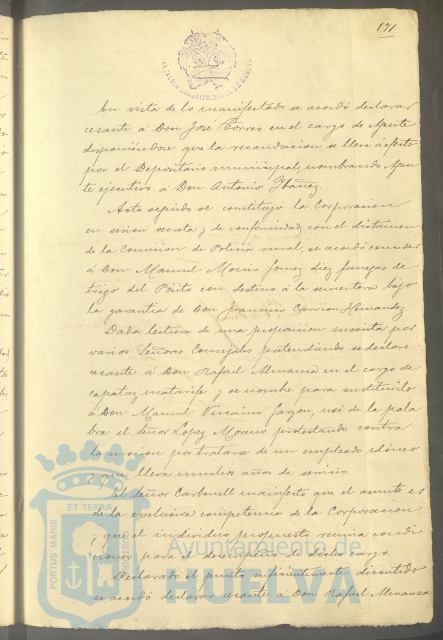 171
En vista de lo manifestado se acordó declarar
cesante á Don José Torres en el cargo de Agente
disponiéndose que la recaudacion se lleve á efecto
por el Depositario municipal, nombrando Agen
te ejecutivo á Don Antonio Ybáñez.
Acto seguido se constituyó la Corporacion
en sesion secreta y de conformidad con el dictamen
de la Comision de Policia rural, se acordó conceder
á Don Manuel Mora Gomez diez fanegas de
trigo del Pósito con destino á la sementera bajo
la garantia de Don Francisco Carrion Hernandez.
Dada lectura de una proposicion suscrita por
varios Señores Concejales pretendiendo se declare
cesante á Don Rafael Almansa en el cargo de
capataz matarife y se nombre para sustituirlo
á Don Manuel Vizcaino Garzon, usó de la pala
bra el Señor Lopez Moreno protestando contra
la mocion por tratarse de un empleado idóneo
y que lleva muchos años de servicio.
El Señor Carbonell manifestó que el asunto es
de la exclusiva competencia de la Corporacion
y que el individuo propuesto reunia condi
ciones para el desempeño de dicho cargo.
Declarado el punto suficientemente discutido
se acordó declarar cesante á Don Rafael Almansa
PORTUS MARIS
ET TERRAE
Ayuntamiento de
HUELVA